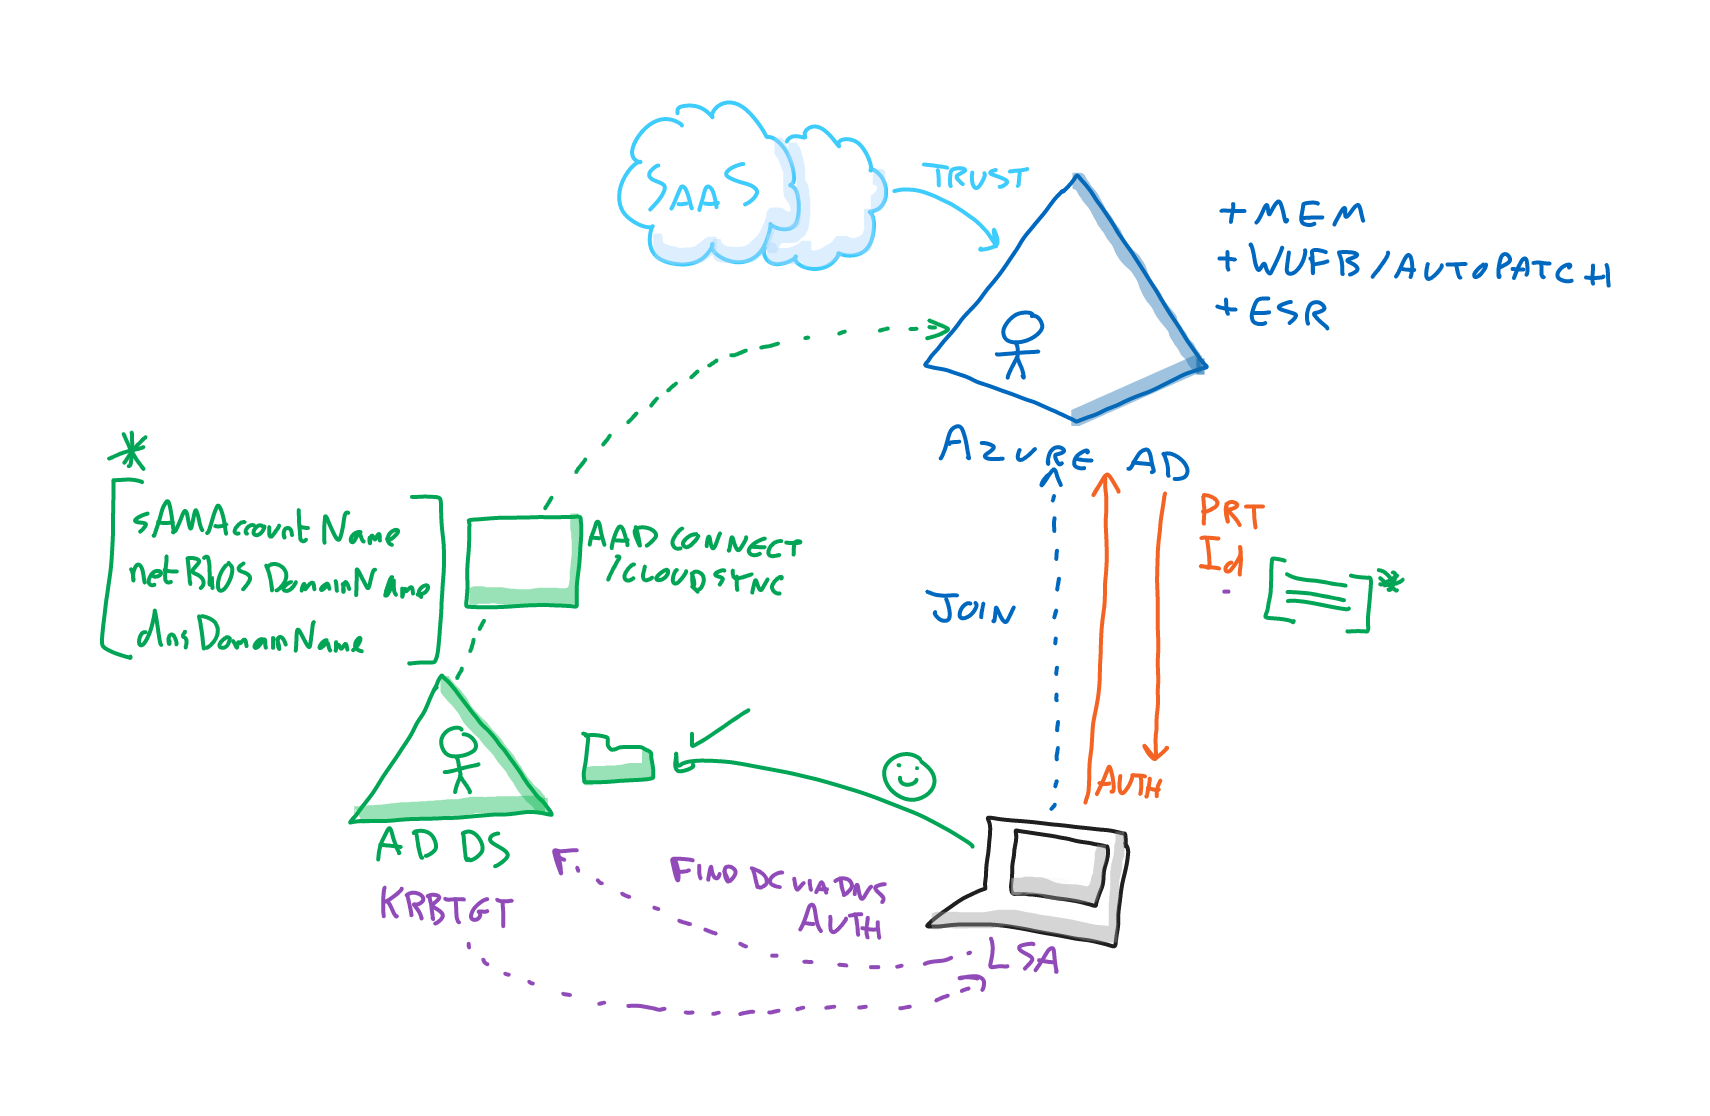 SAAS
TRUST
+ MEM
+ WUFB/AUTOPATCH
+ ESR
AZURE AD
*
sAMAccountName
netBIOS DomainName
dnsDomainName
AAD CONNECT
/CLOUD SYNC
PRT
Id
*
JOIN
AUTH
AD DS
KRBTGT
FIND DC VIA DNS
AUTH
LSA